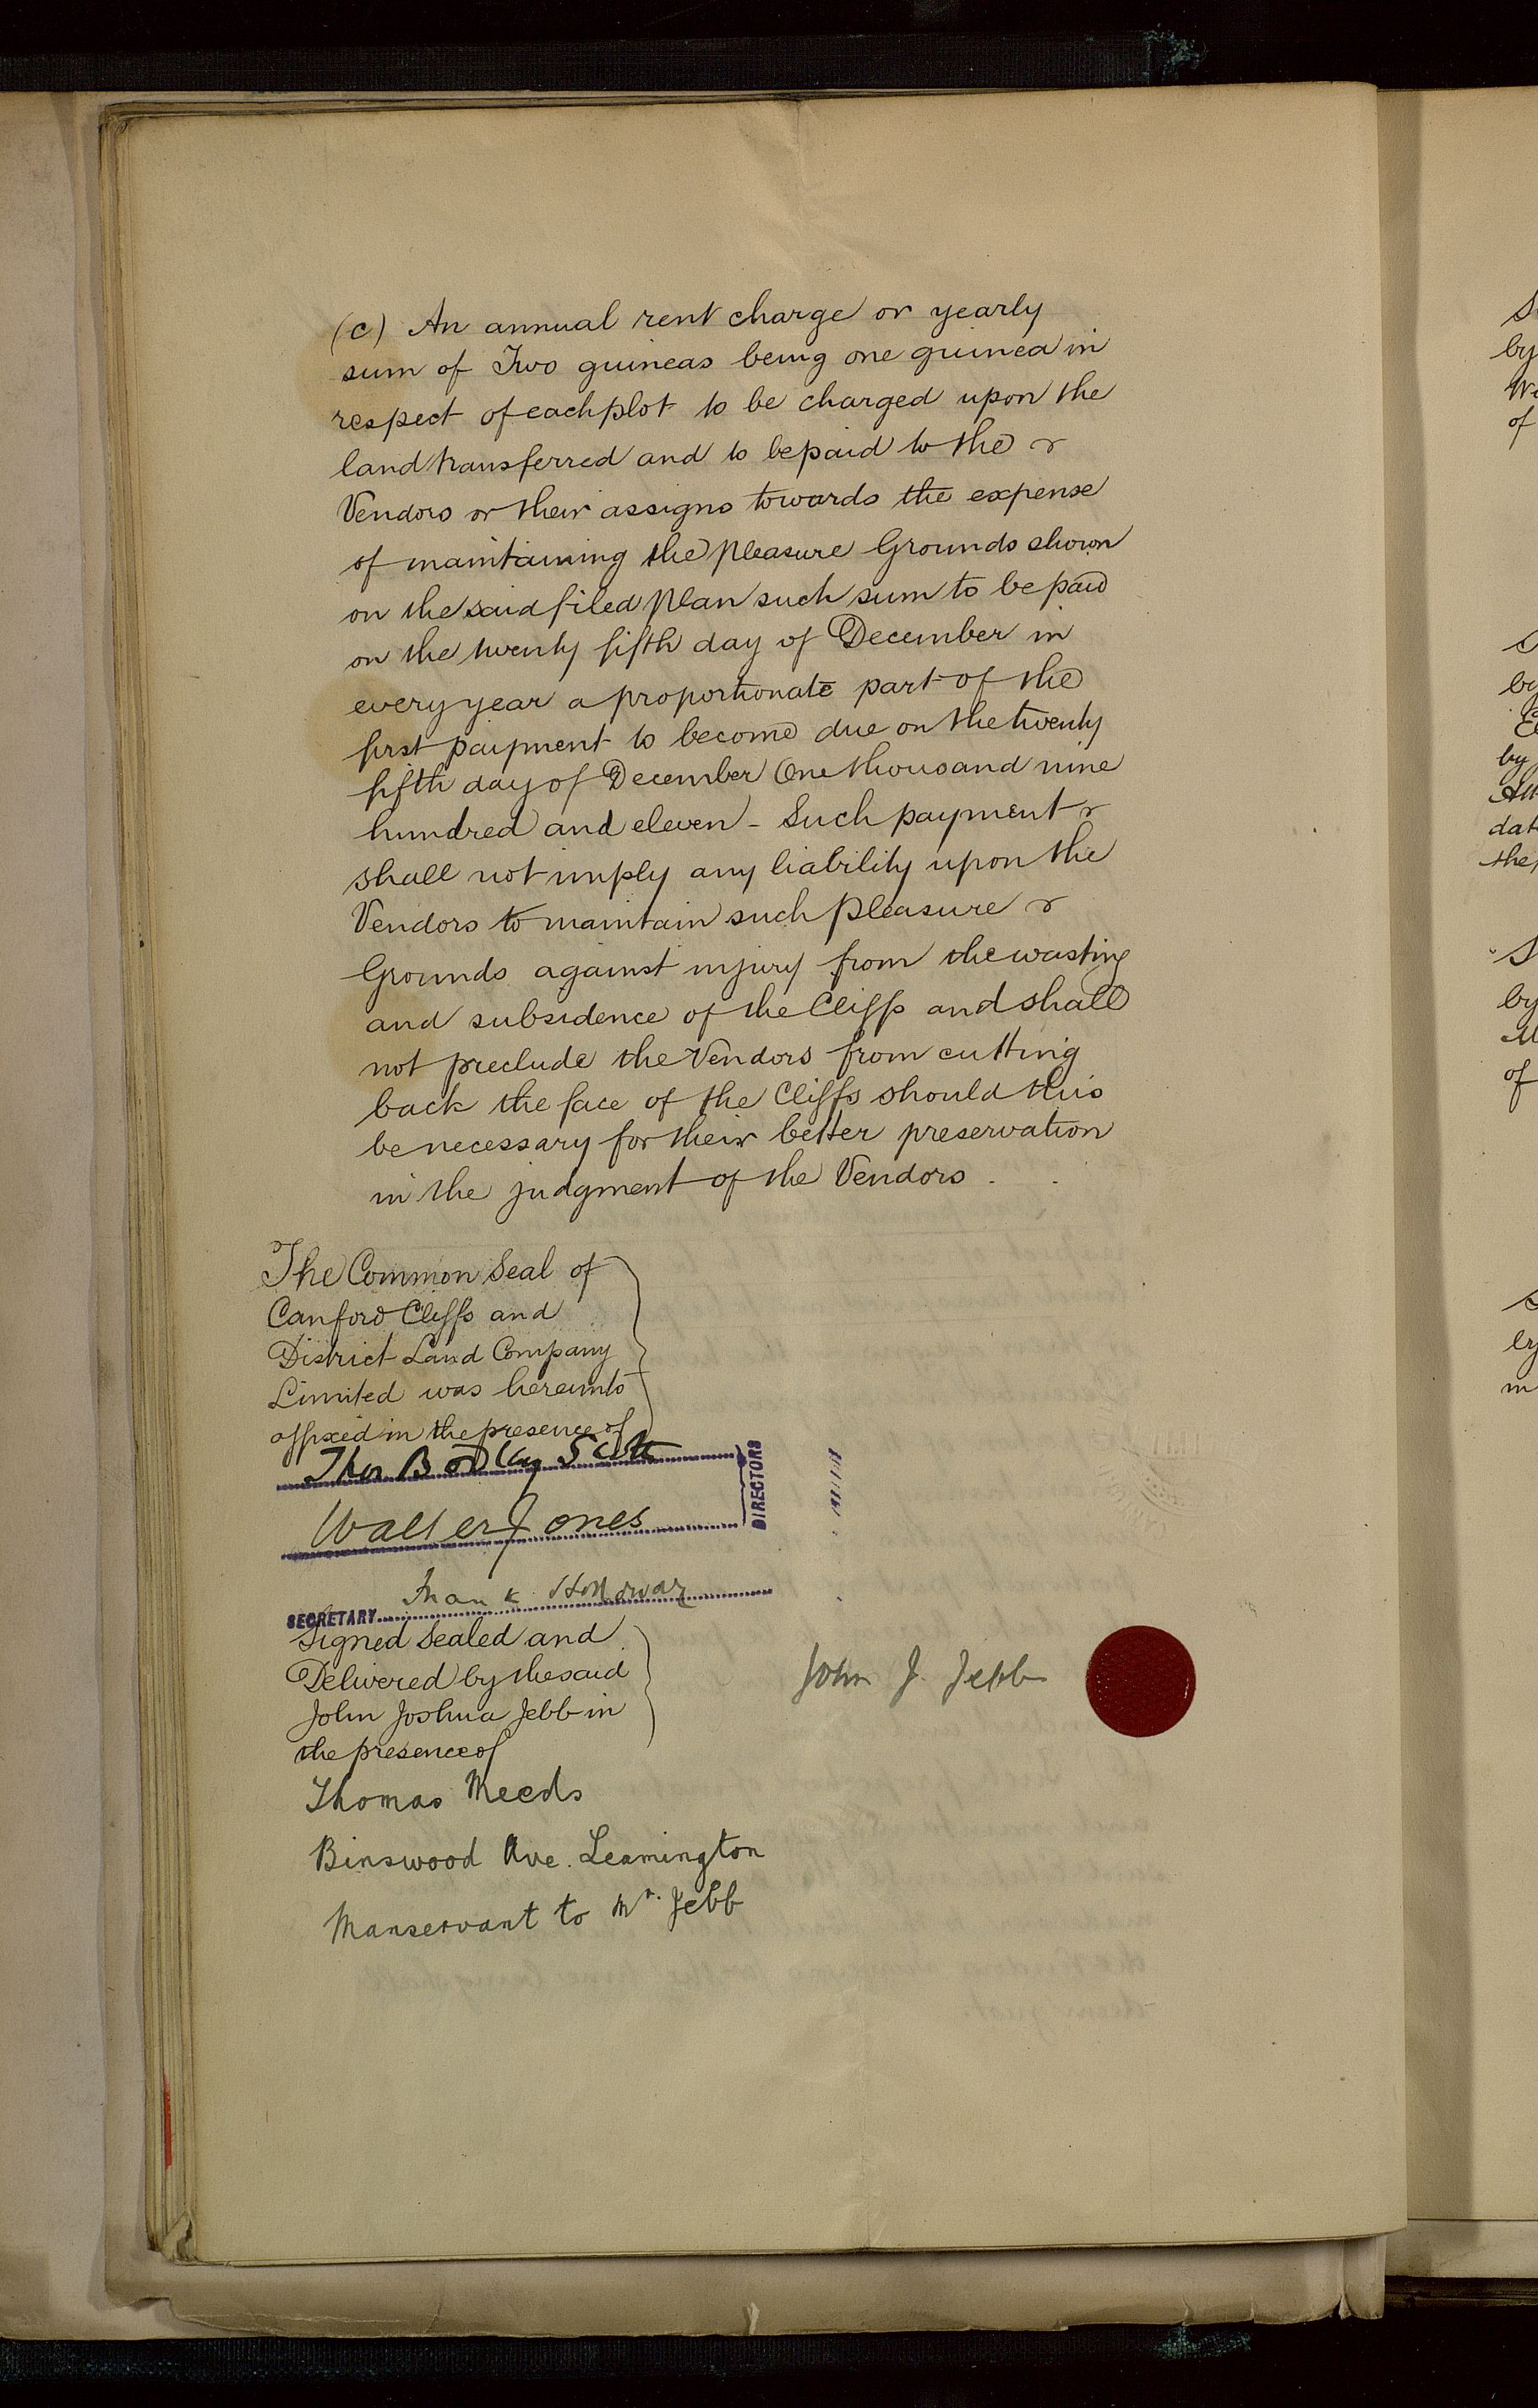 (c) An annual rent charge or yearly
sum of Two guineas being one guinea in
respect of each plot to be charged upon the
land transferred and to be paid to the
Vendors or their assigns towards the expense
of maintaining the Pleasure Grounds shown
on the said filed Plan such sum to be paid
on the twenty fifth day of December in
every year a proportionate part of the
first payment to become due on the twenty
fifth day of December One thousand nine
hundred and eleven - Such payment
shall not imply any liability upon the
Vendors to maintain such Pleasure
Grounds against injury from the wasting
and subsidence of the Cliffs and shall
not preclude the Vendors from cutting
back the face of the Cliffs should this
be necessary for their better preservation
in the judgment of the Vendors.
The Common Seal of
Canford Cliffs and
District Land Company
Limited was hereunto
affixed in the presence of
Thos Bodley Scott
Walter Jones
DIRECTORS
Frank Holloway
SECRETARY
Signed Sealed and
Delivered by the said
John Joshua Jebb in
the presence of
John J. Jebb
Thomas Meeds
Binswood Ave. Leamington
Manservant to Mr. Jebb
S
by
of
by
by
date
the
by
of